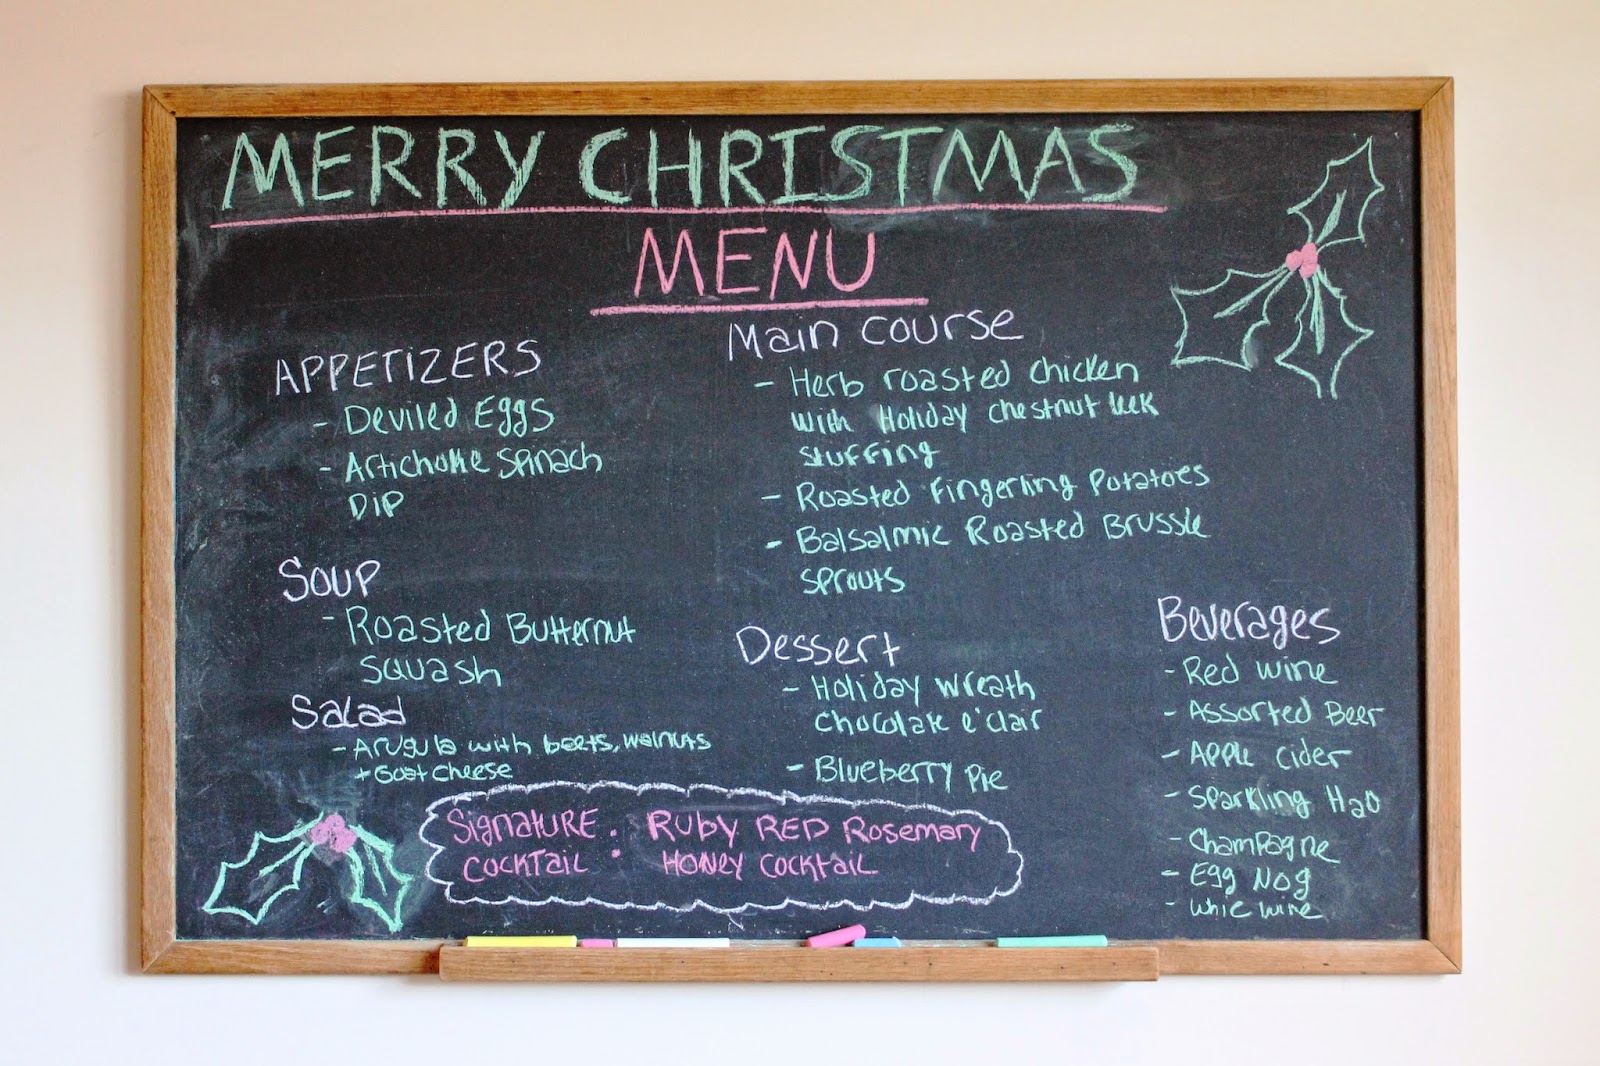 MERRY CHRISTMAS
MENU
APPETIZERS
- Deviled Eggs
- Artichoke Spinach
Dip
Soup
- Roasted Butternut
Squash
Salad
- Arugula with beets, walnuts
+ Goat cheese
Main course
- Herb roasted chicken
with Holiday chestnut leek
stuffing
- Roasted Fingerling Potatoes
- Balsalmic Roasted Brussle
sprouts
Dessert
- Holiday wreath
chocolate e'clair
- Blueberry Pie
Beverages
- Red wine
- Assorted Beer
- Apple cider
- Sparkling H2O
- Champagne
- Egg Nog
- Whie wine
Signature : Ruby RED Rosemary
COCKTAIL Honey Cocktail